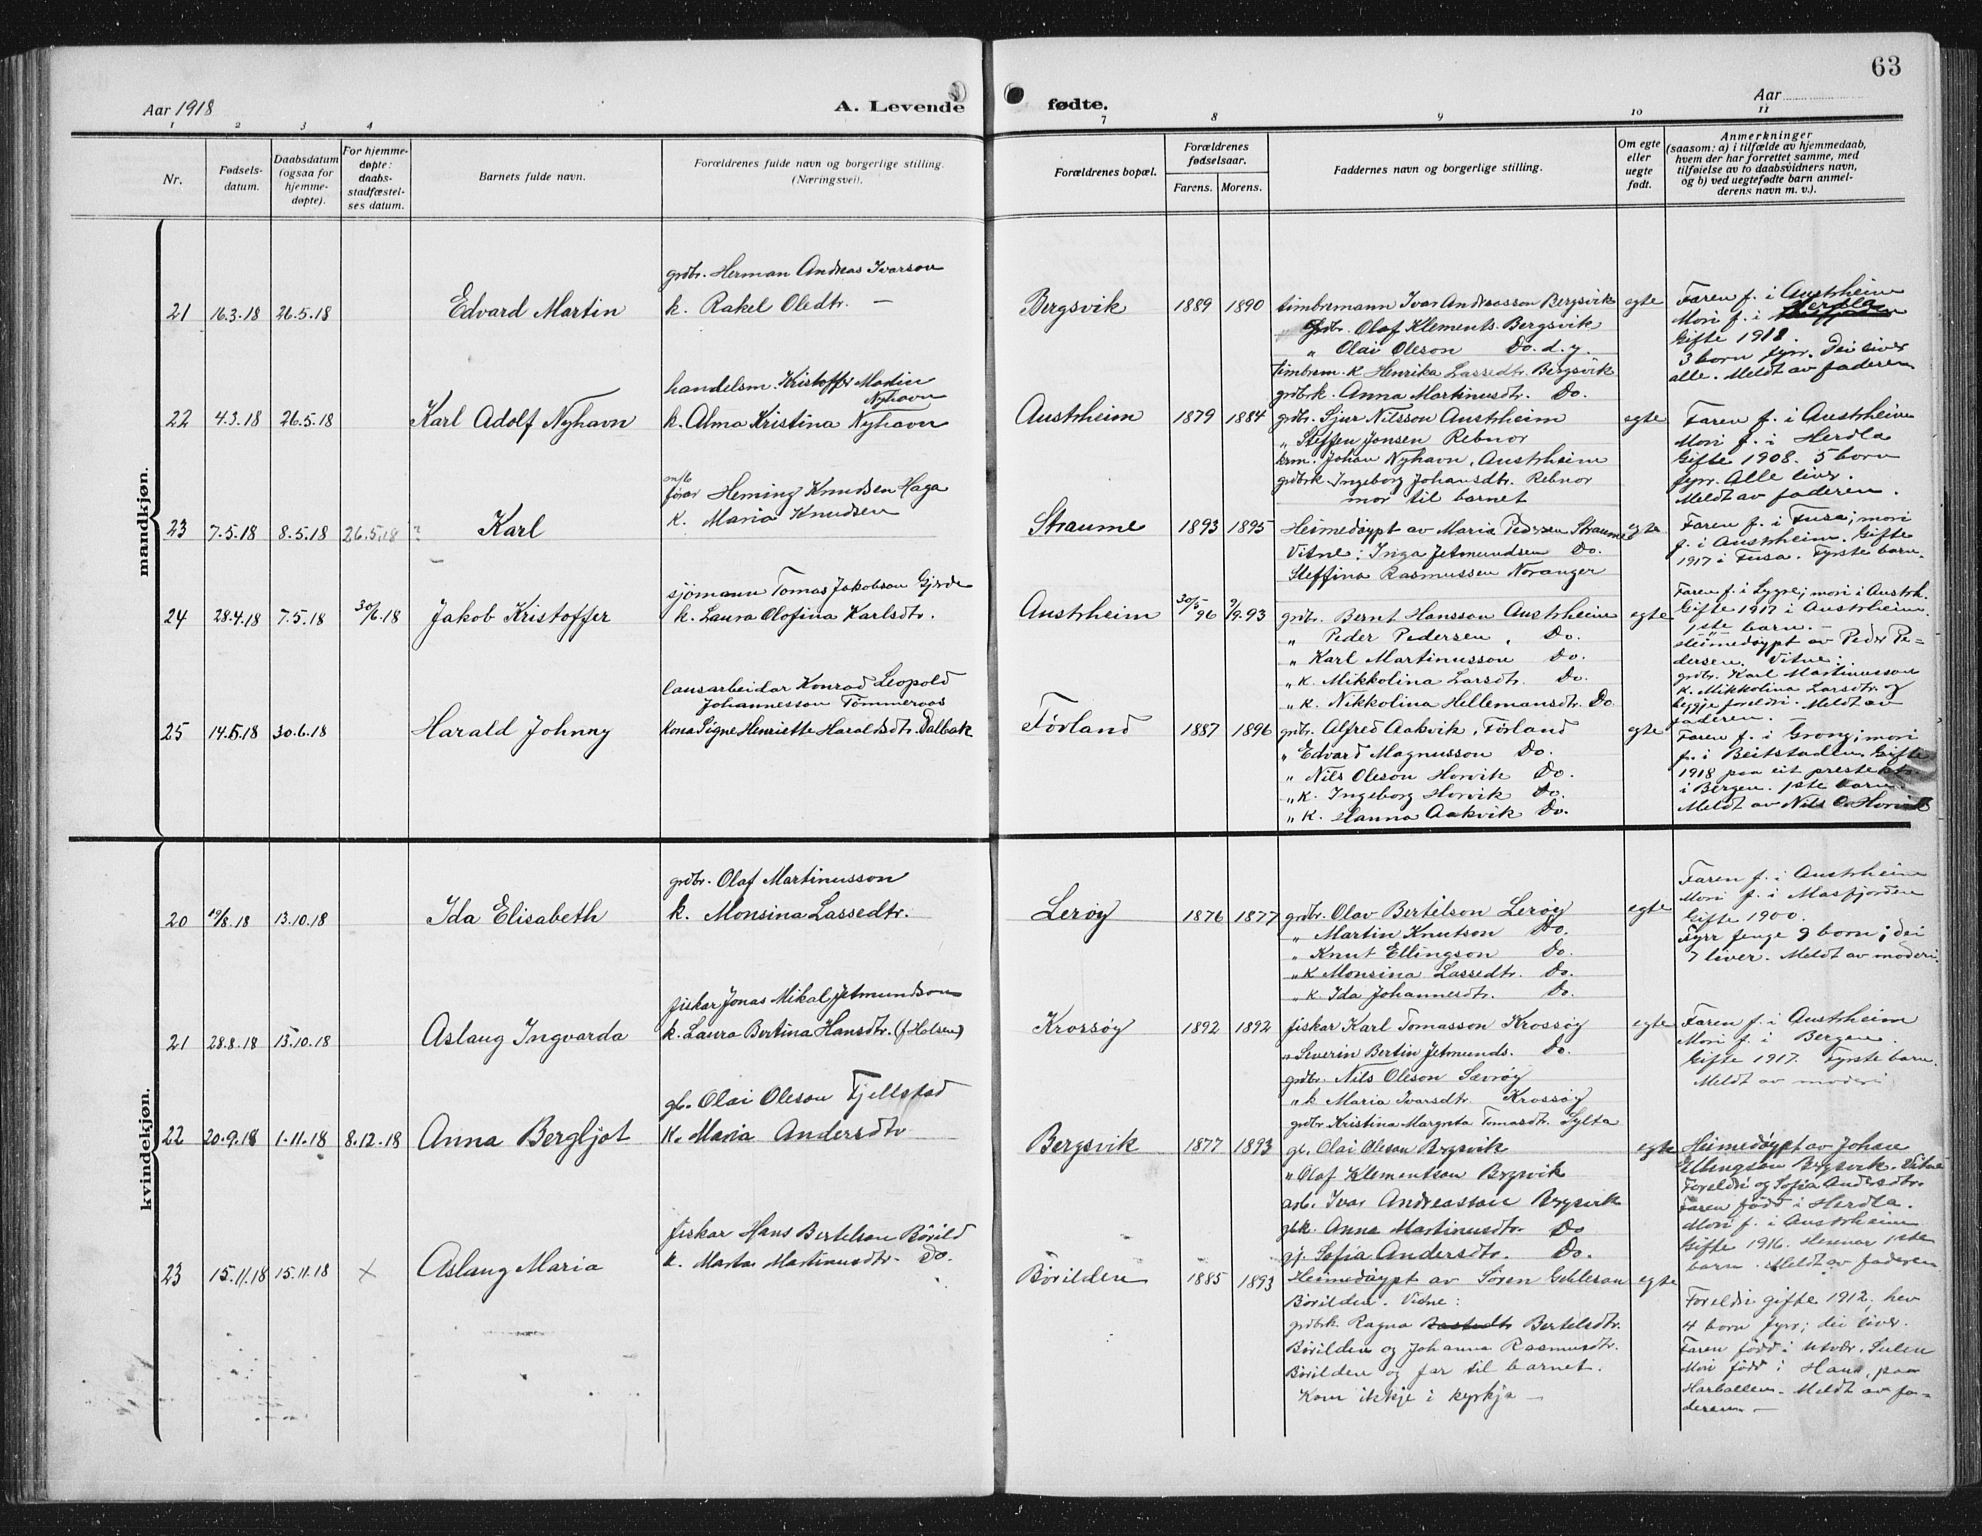 63
Aar 1918
A. Levende
fødte.
Aar
1 2 3 4 7 8 9 10 11
Nr.
Fødsels-
datum.
Daabsdatum
(ogsaa for
hjemme-
døpte).
For hjemme-
døpte:
daabs-
stadfæstel-
ses datum.
Barnets fulde navn.
Forældrenes fulde navn og borgerlige stilling.
(Næringsvei).
Forældrenes bopæl.
Forældrenes
fødselsaar.
Farens. Morens.
Faddernes navn og borgerlig stilling.
Om egte
eller
uegte
født.
Anmerkninger
(saasom: a) i tilfælde av hjemmedaab,
hvem der har forrettet samme, med
tilføielse av to daabsvidners navn,
og b) ved uegtefødte barn anmel-
derens navn m. v.).
mandkjøn.
21 16.3.18 26.5.18
Edvard Martin
grdbr. Herman Andreas Ivarson
k. Rakel Oledtr. —
Bergsvik 1889 1890
timbremann Ivar Andreasson Bergsvik
grdbr. Olaf Klements. Bergsvik
" Olai Oleson Do. d. y.
timbrem. k Henrika Lassedtr. Bergsvik
grdbrk. Anna Martinusdtr. Do.
egte
Faren f. i Austrheim
Mori f. i Herdla
Gifte 1918.
3 born fyrr. Dei liver
alle. Meldt av faderen
22 4.3.18 26.5.18
Karl Adolf Nyhavn
handelsm. Kristoffer Martin
Nyhavn
k. Alma Kristina Nyhavn
Austrheim 1879 1884
grdbr. Sjur Nilsson Austrheim
" Steffen Jonsen Rebnor
krm. Johan Nyhavn, Austrheim
grdbrk. Ingeborg Johansdtr. Rebnor
mor til barnet
egte
Faren f. i Austrheim
Mori f. i Herdla
Gifte 1908. 5 born
fyrr. Alle liver.
Meldt av faderen.
23 7.5.18 8.5.18 26.5.18 ?
Karl
m/b
førar Heming Knudsen Haga
k. Maria Knudsen
Straume 1893 1895
Heimedøypt av Maria Pedersen Straume
Vitne: Inga Jetmundsen Do.
Steffina Rasmussen Noranger
egte
Faren f. i Fusa; mori
f. i Austrheim. Gifte
1917 i Fusa. Fyrste barn.
24 28.4.18 7.5.18 30/6.18
Jakob Kristoffer
sjømann Tomas Jakobson Gjerde
k. Laura Olofina Karlsdtr.
Austrheim 30/5 96 9/9.93
grdbr. Bernt Hansson Austrheim
" Peder Pedersen, Do.
" Karl Martinusson Do.
" k. Mikkolina Larsdtr. Do.
" k. Nikkolina Hellemansdtr. Do
egte
Faren f. i Lygre; mori i Austrh.
Gifte 1917 i Austrheim.
1ste barn. —
Heimedøypt av Peder Pe=
dersen. Vitne:
grdbr. Karl Martinusson
k. Mikkolina Larsdtr. og
begge foreldri. Meldt av
faderen.
25 14.5.18 30.6.18
Harald Johnny
lausarbeidar Konrad Leopold
Johannesson Tømmeraas
Kona Signe Henriette Haraldsdtr. Dalbak
Førland 1887 1896
grdbr. Alfred Aakvik, Førland
" Edvard Magnusson Do.
" Nils Oleson Horvik Do.
" k. Ingeborg Horvik Do.
" k. Hanna Aakvik Do.
egte
Faren f. i Grong; mori
f. i Beitstaden. Gifte
1918 paa eit prestekt.
i Bergen. 1ste barn.
Meldt av Nils O. Horvik
kvindekjøn.
20 19/8.18 13.10.18
Ida Elisabeth
grdbr. Olaf Martinusson
k. Monsina Lassedtr.
Lerøy 1876 1877
grdbr. Olav Bertelson Lerøy
" Martin Knutson Do.
" Knut Ellingson Do.
" k Monsina Lassedtr. Do.
" k Ida Johannesdtr. Do.
egte
Faren f. i Austrheim
Mori f. i Masfjorden
Gifte 1900.
Fyrr fenge 9 born; dei
7 liver. Meldt av moderi.
21 28.8.18 13.10.18
Aslaug Ingvarda
fiskar Jonas Mikal Jetmundson
k. Laura Bertina Hansdtr. (f. Holsen)
Krossøy 1892 1892
fiskar Karl Tomasson Krossøy
" Severin Bertin Jetmunds. Do.
grdbr. Nils Oleson Sævrøy
" k Maria Ivarsdtr. Krossøy
grdbr. Kristina Margreta Tomasdtr. Sylta
egte
Faren f. i Austrheim
Mori f. i Bergen.
Gifte 1917. Fyrste barn.
Meldt av moderi
22 20.9.18 1.11.18 8.12.18
Anna Bergljot
gb. Olai Oleson Fjellstad
k. Maria Andersdtr
Bergsvik 1877 1893
gb. Olai Oleson Bergsvik
" Olaf Klementson Bergsvik
arb. Ivar Andreassen Bergsvik
gbk. Anna Martinusdtr. Do
gj. Sofia Andersdtr. Do.
egte
Heimedøypt av Johan
Ellingson Bergsvik. Vitne
Foreldri og Sofia Andersdtr.
Faren född i Herdla.
Mori f. i Austrheim
Gifte 1916. Hennar 1ste
barn. Meldt av faderen
23 15.11.18 15.11.18 x
Aslaug Maria
fiskar Hans Bertelson Børild
k. Marta Martinusdtr. Do.
Børilden 1885 1893
Heimedøypt av Søren Gableson
Børilden. Vitne:
grdbrk Ragna Bertelsdtr.
Børilden og Johanna Rasmusdtr.
Børilden og far til barnet.
Kom ikkje i kyrkja —
egte
Foreldri gifte 1912, hev
4 born fyrr; dei liver.
Faren född i Utvær. Sulen
Mori född i Hans, paa
Harballen. Meldt av fa-
deren. —